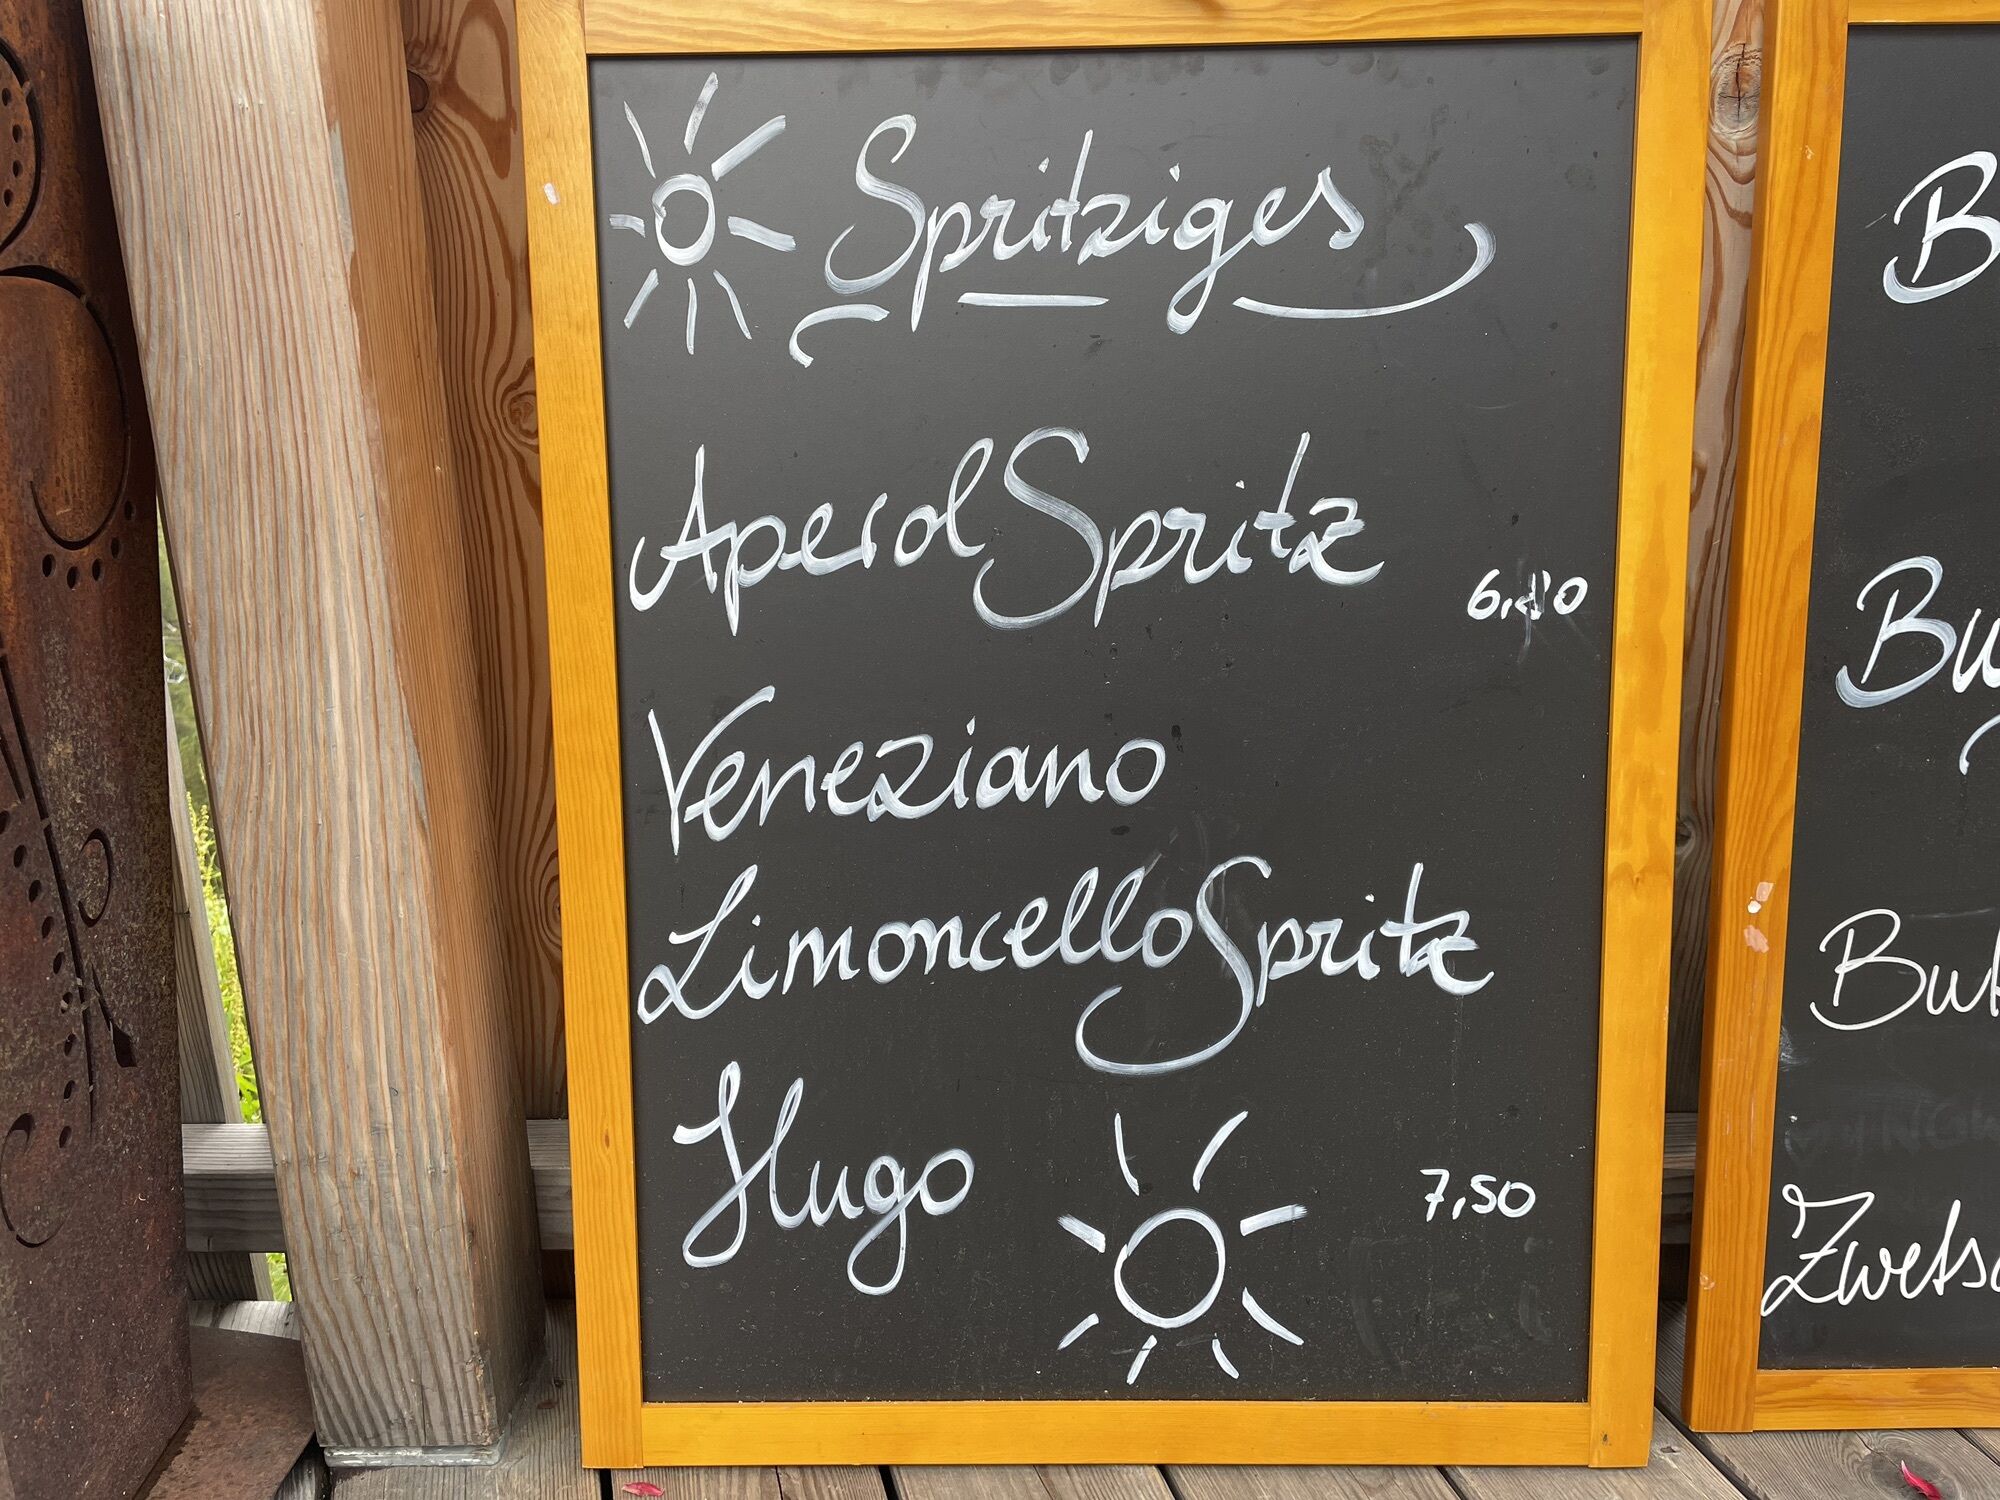 Spritziges
Aperol Spritz
Veneziano
Limoncello Spritz
Hugo
7,50